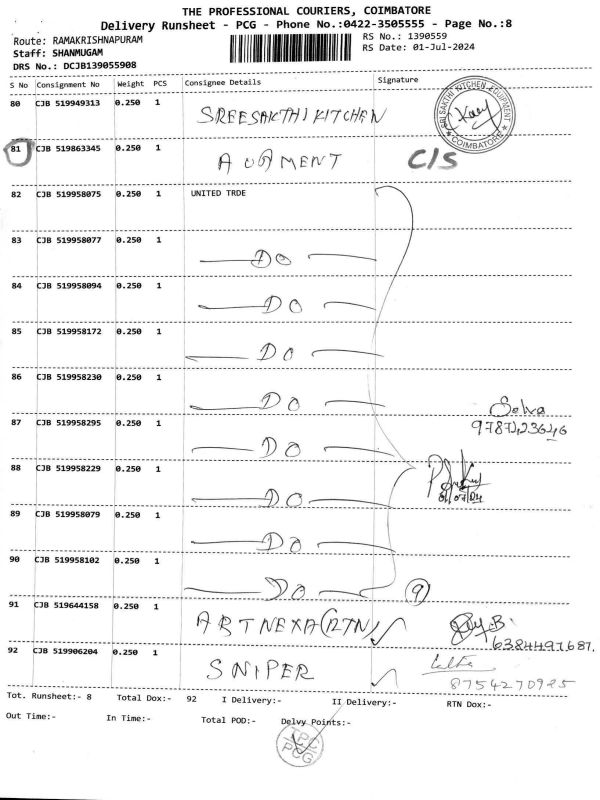 THE PROFESSIONAL COURIERS, COIMBATORE
Delivery Runsheet - PCG - Phone No.:0422-3505555 - Page No.:8
Route: RAMAKRISHNAPURAM RS No.: 1390559
Staff: SHANMUGAM RS Date: 01-Jul-2024
DRS No.: DCJB139055908
S No Consignment No Weight PCS Consignee Details Signature
80 CJB 519949313 0.250 1 SREESAKTHI KITCHEN
SRI SAKTHI KITCHEN EQUIPMENT COIMBATORE
81 CJB 519863345 0.250 1 AUGMENT C/S
82 CJB 519958075 0.250 1 UNITED TRDE
83 CJB 519958077 0.250 1 DO
84 CJB 519958094 0.250 1 DO
85 CJB 519958172 0.250 1 DO
86 CJB 519958230 0.250 1 DO Selva
9787423646
87 CJB 519958295 0.250 1 DO
88 CJB 519958229 0.250 1 DO
89 CJB 519958079 0.250 1 DO
90 CJB 519958102 0.250 1 DO 9
91 CJB 519644158 0.250 1 ARTNEXA (RTN)
6384497687.
92 CJB 519906204 0.250 1 SNIPER
8754270925
Tot. Runsheet:- 8 Total Dox:- 92 I Delivery:- II Delivery:- RTN Dox:-
Out Time:- In Time:- Total POD:- Delvy Points:-